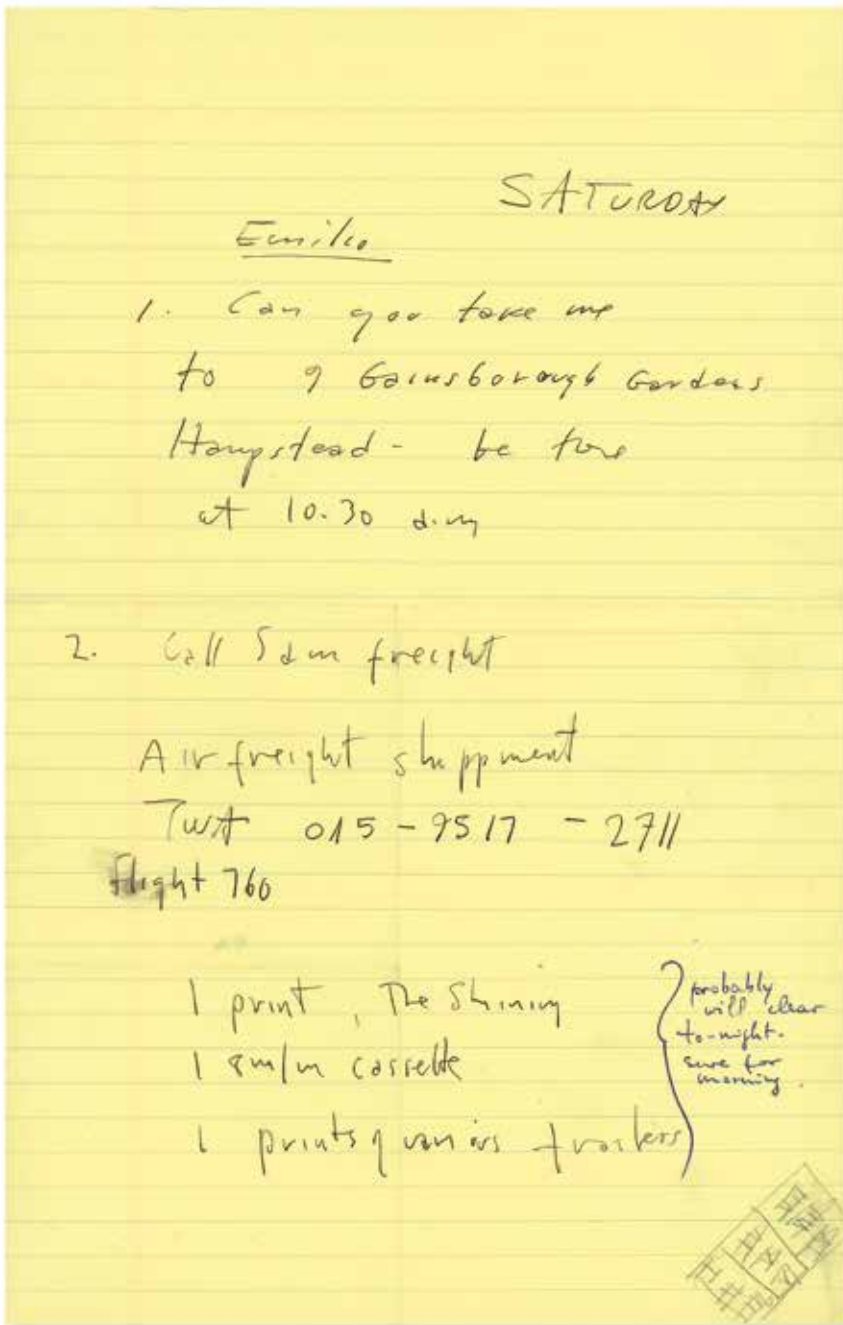 SATURDAY
Emilio
1. Can you take me
to 9 Gainsborough Gardens
Hampstead - be there
at 10.30 a.m
2. Call Sam freight
Air freight shippment
TWA 015-9517-2711
flight 760
1 print, The Shining
1 8m/m cassette
1 prints of various trailers
probably
will clear
to-night.
sure for
morning.